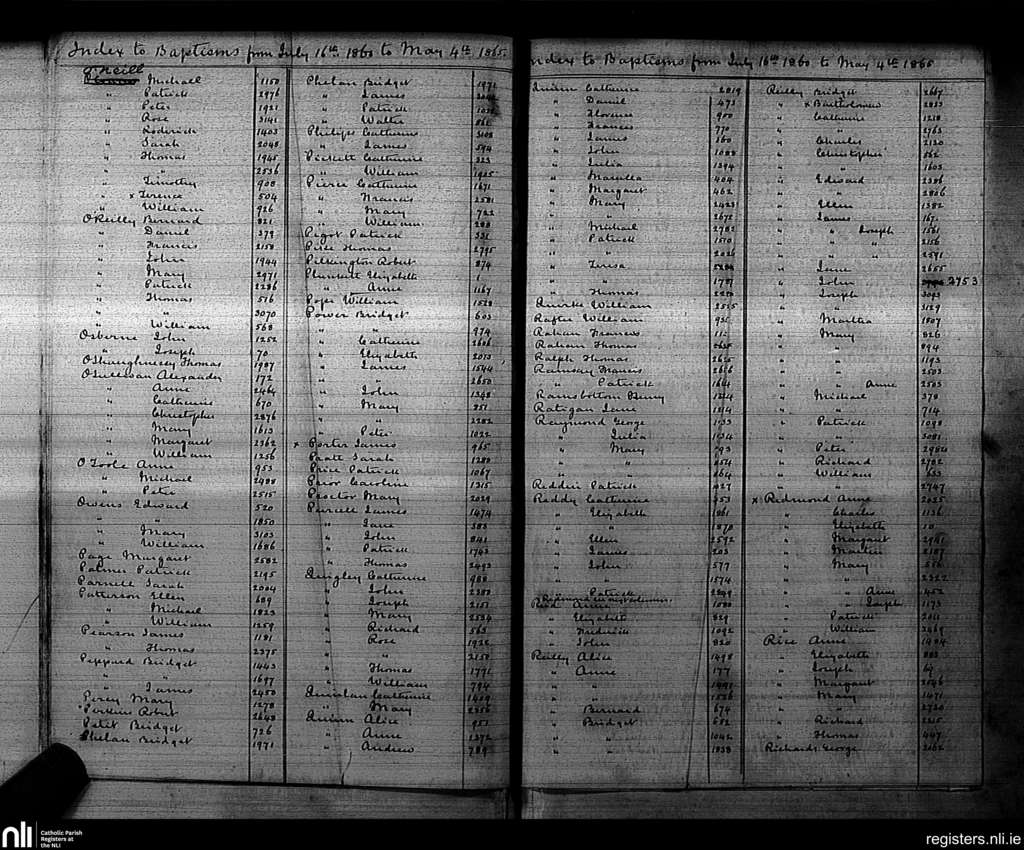 Index to Baptisms from July 16th 1860 to May 4th 1865.
O'Neill
Michael 1150
" Patrick 2976
" Peter 1921
" Rose 3141
" Roderick 1403
" Sarah 2045
" Thomas 1945
" " 2536
" Timothy 908
" x Terence 504
" William 926
O'Reilly Bernard 821
" Daniel 379
" Francis 2158
" John 1944
" Mary 2971
" Patrick 2286
" Thomas 516
" " 3070
" William 568
Osborne John 1252
" Joseph 70
O'Shaughnessy Thomas 1987
O'Sullivan Alexander 172
" Anne 2464
" Catherine 670
" Christopher 2876
" Mary 1613
" Margaret 2362
" William 1256
O'Toole Anne 953
" Michael 2488
" Peter 2515
Owens Edward 520
" " 1850
" Mary 3103
" William 1686
Page Margaret 2582
Palmer Patrick 2195
Parnell Sarah 2004
Patterson Ellen 689
" Michael 1823
" William 1259
Pearson James 1181
" Thomas 2375
Peppard Bridget 1443
" " 1697
" James 2450
Percy Mary 1278
Perkins Robert 2643
Petit Bridget 726
Phelan Bridget 1971
Phelan Bridget 1971
" James
" Patrick
" Walter
Philips Catherine 3108
" James 594
Pickett Catherine 323
" William
Pierce Catherine 1671
" Francis 2581
" Mary 722
" William 288
Pigot Patrick 331
Pike Thomas 2795
Pilkington Robert 874
Plunkett Elizabeth 1
" Anne 1167
Pope William 1528
Power Bridget 603
" " 974
" Catherine 2606
" Elizabeth 2013
" James 1544
" " 2650
" John 1348
" Mary 251
" " 2282
" Peter 1022
x Porter James 965
Pratt Sarah 1280
Price Patrick 1067
Prior Caroline 1315
Proctor Mary 2029
Purcell James 1474
" Jane 383
" John 841
" Patrick 1743
" Thomas 2493
Quigley Catherine 988
" John 2380
" Joseph 2157
" Mary 2534
" Richard 563
" Rose 1922
" " 2150
" Thomas 1771
" William 794
Quinlan Catherine 1409
" Mary 2356
Quinn Alice 952
" Anne 1372
" Andrew 789
Index to Baptisms from July 16th 1860 to May 4th 1865
Quinn Catherine 2819
" Daniel 473
" Florence 900
" Frances 770
" James 160
" John 1088
" Julia 1394
" Marcella 404
" Margaret 462
" Mary 2423
" " 2672
" Michael 2782
" Patrick 1510
" " 2026
" Teresa
" " 1787
" Thomas
Quirke William 2525
Rafter William
Rahan Francis
Rahan Thomas
Ralph Thomas 2625
Ramsay Francis 2616
" Patrick 1664
Ramsbottom Henry 1214
Ratigan Jane 1214
Raymond George 1733
" Julia 1734
" Mary 793
" " 854
" " 864
Reddin Patrick 1027
Reddy Catherine 253
" Elizabeth 1861
" " 1870
" Ellen 2592
" James 203
" John 577
" " 1574
" Patrick 2849
Reid Anne 1080
" Elizabeth 829
" Frederick 1092
" John 820
Reilly Alice 1498
" Anne 177
" " 1491
" " 1526
" Bernard 674
" Bridget 652
" " 1042
" " 1838
Reilly Bridget 2667
" x Bartholomew 2833
" Catherine 1218
" " 2763
" Charles 2130
" Christopher 562
" " 1603
" Edward 2386
" " 2806
" Ellen 1382
" James 167
" " Joseph 1561
" " " 2156
" " " 2591
" Jane 2655
" John 2753
" Joseph 3093
" " 3129
" Martha 1807
" Mary 826
" " 894
" " 1193
" " 2503
" " Anne 2503
" Michael 378
" " 714
" Patrick 1098
" " 3081
" Peter 2984
" Richard 2782
" William 653
" " 2747
x Redmond Anne 2025
" Charles 1136
" Elizabeth 10
" Margaret 2961
" Martin 2187
" Mary 556
" " 2322
" " Anne 452
" " Joseph 1173
" Patrick 2011
" William 2469
Rice Anne 1424
" Elizabeth
" Joseph 67
" Margaret 2146
" Mary 1071
" " 2720
" Richard 2215
" Thomas 447
Richards George 2162
nli Catholic Parish
Registers at
the NLI
registers.nli.ie